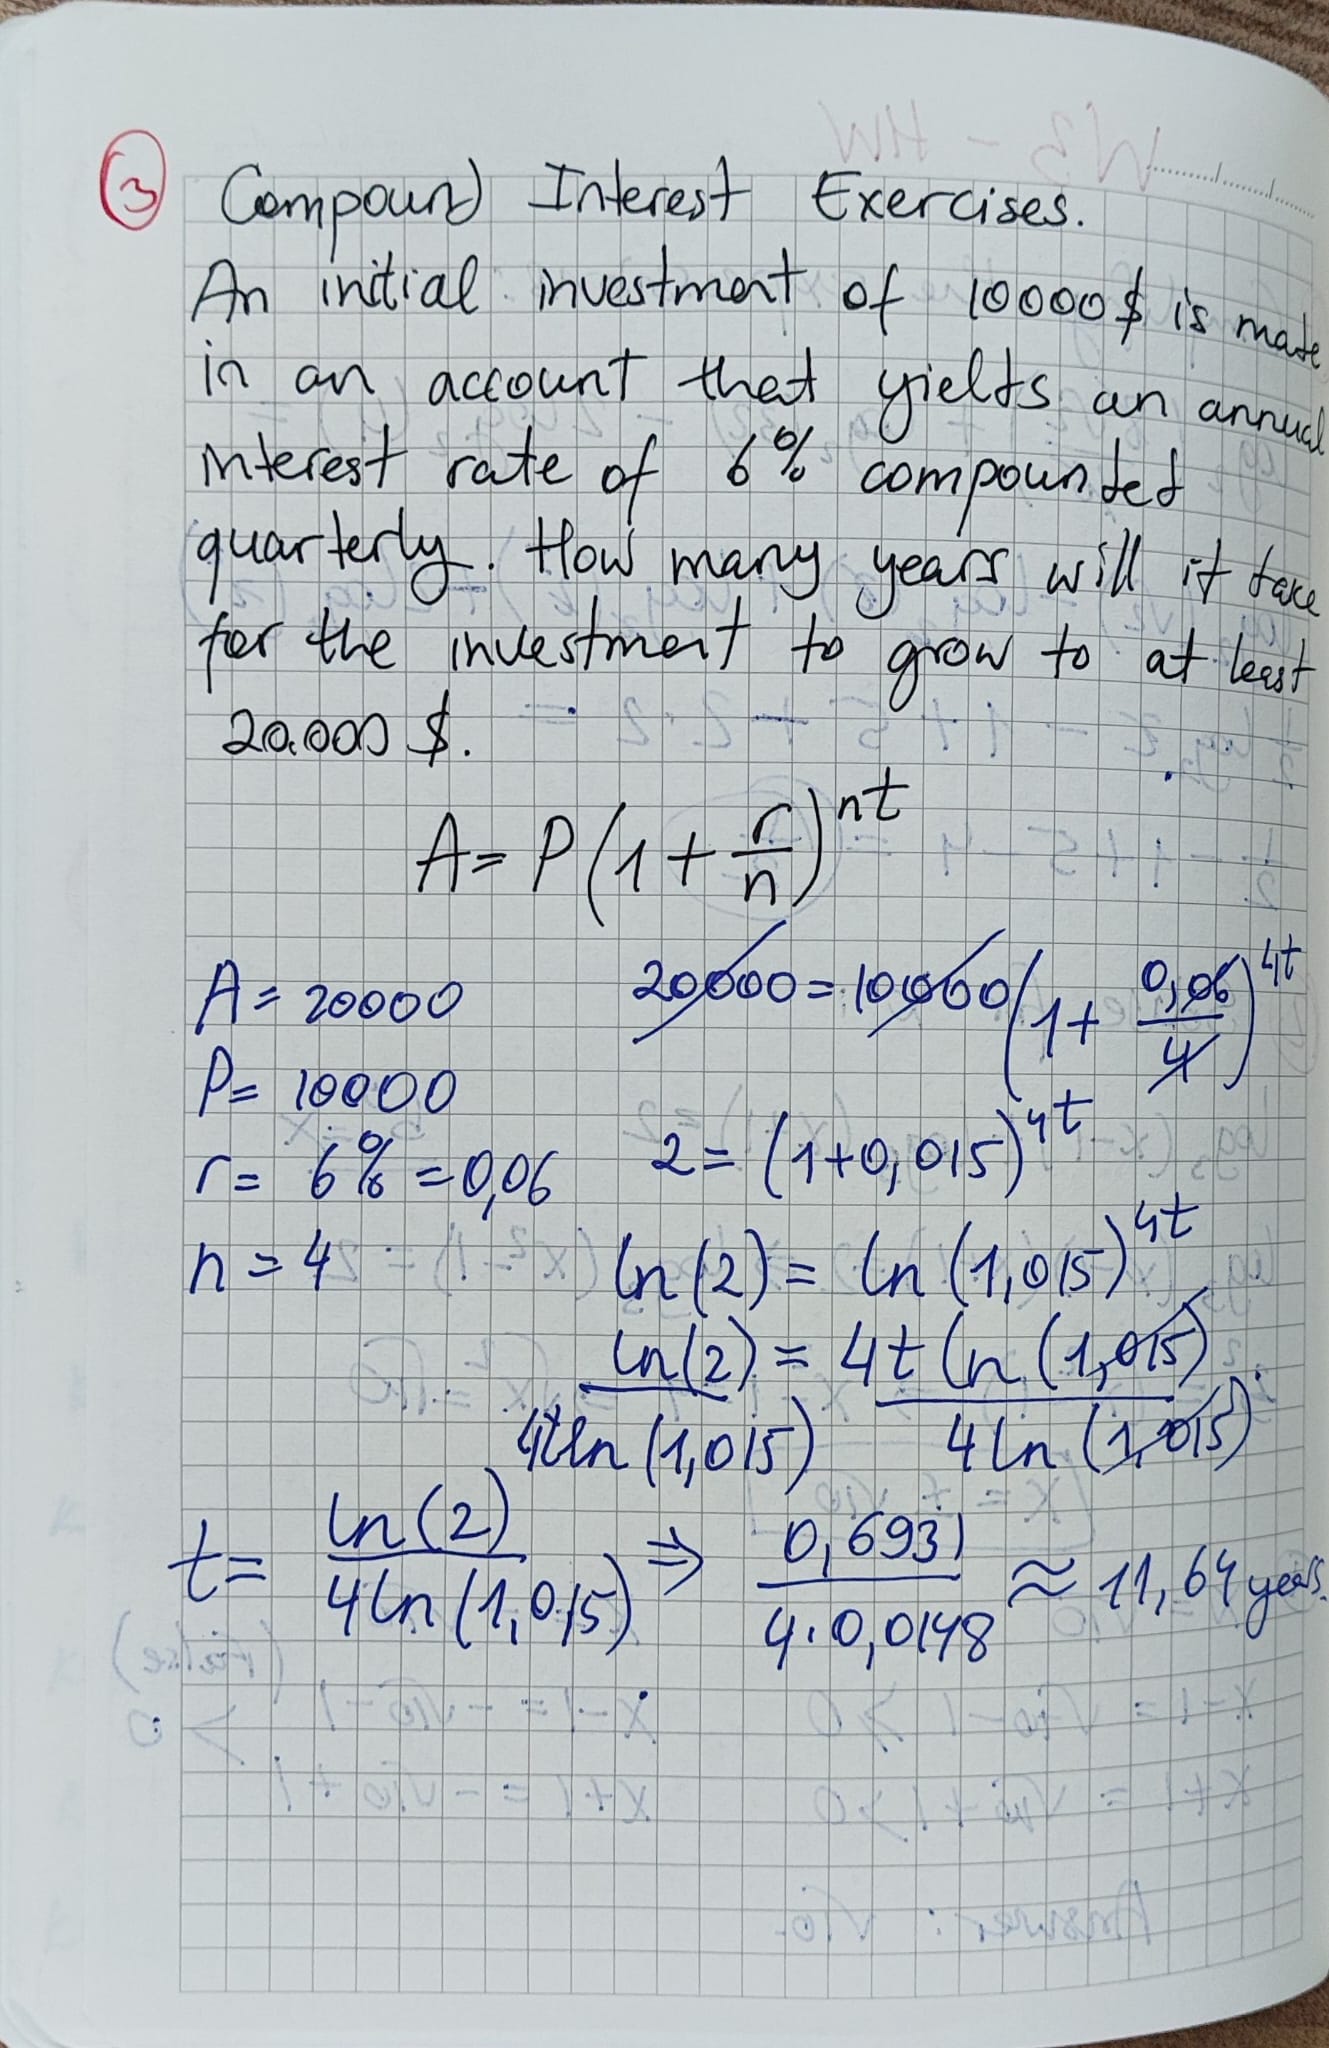 3 Compound Interest Exercises.
An initial investment of 10000$ is made
in an account that yields an annual
interest rate of 6% compounded
quarterly. How many years will it take
for the investment to grow to at least
20.000 $.
A = P(1 + r/n)^nt
A = 20000 20000 = 10000(1 + 0,06/4)^4t
P = 10000
r = 6% = 0,06 2 = (1+0,015)^4t
n = 4 ln(2) = ln(1,015)^4t
ln(2) = 4t ln(1,015)
4t ln(1,015) 4 ln(1,015)
t = ln(2)/4 ln(1,015) ⇒ 0,6931/4·0,0148 ≈ 11,64 years.